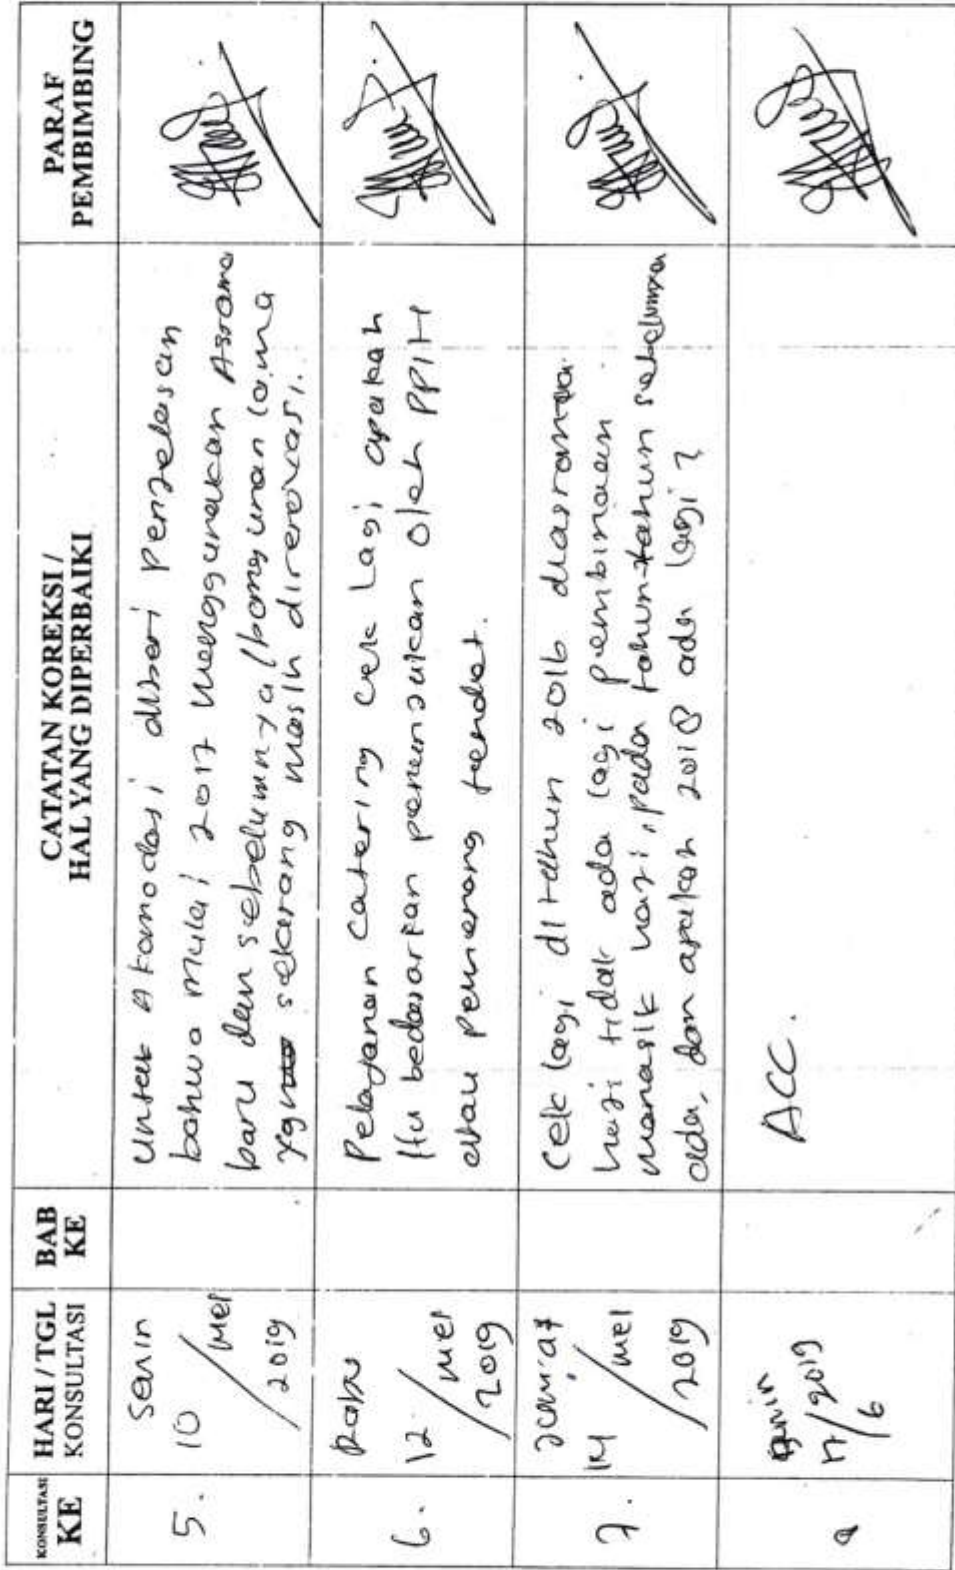 KONSULTASI KE
HARI / TGL KONSULTASI
BAB KE
CATATAN KOREKSI / HAL YANG DIPERBAIKI
PARAF PEMBIMBING
5.
Senin
10 / Mei / 2019
Untuk Akomodasi diberi penjelasan
bahwa mulai 2017 menggunakan Asrama
baru dan sebelumnya (bangunan lama
yg sekarang masih direnovasi.
6.
Rabu
12 / Mei / 2019
Pelayanan Catering cek lagi apakah
itu bedasarkan penunjukan oleh PPIH
atau pemenang tender.
7.
Jum'at
14 / Mei / 2019
Cek lagi di tahun 2016 diasrama
haji tidak ada lagi pembinaan
manasik haji, pada tahun-tahun sebelumnya
ada, dan apakah 2018 ada lagi ?
Senin
17/2019
6
ACC.